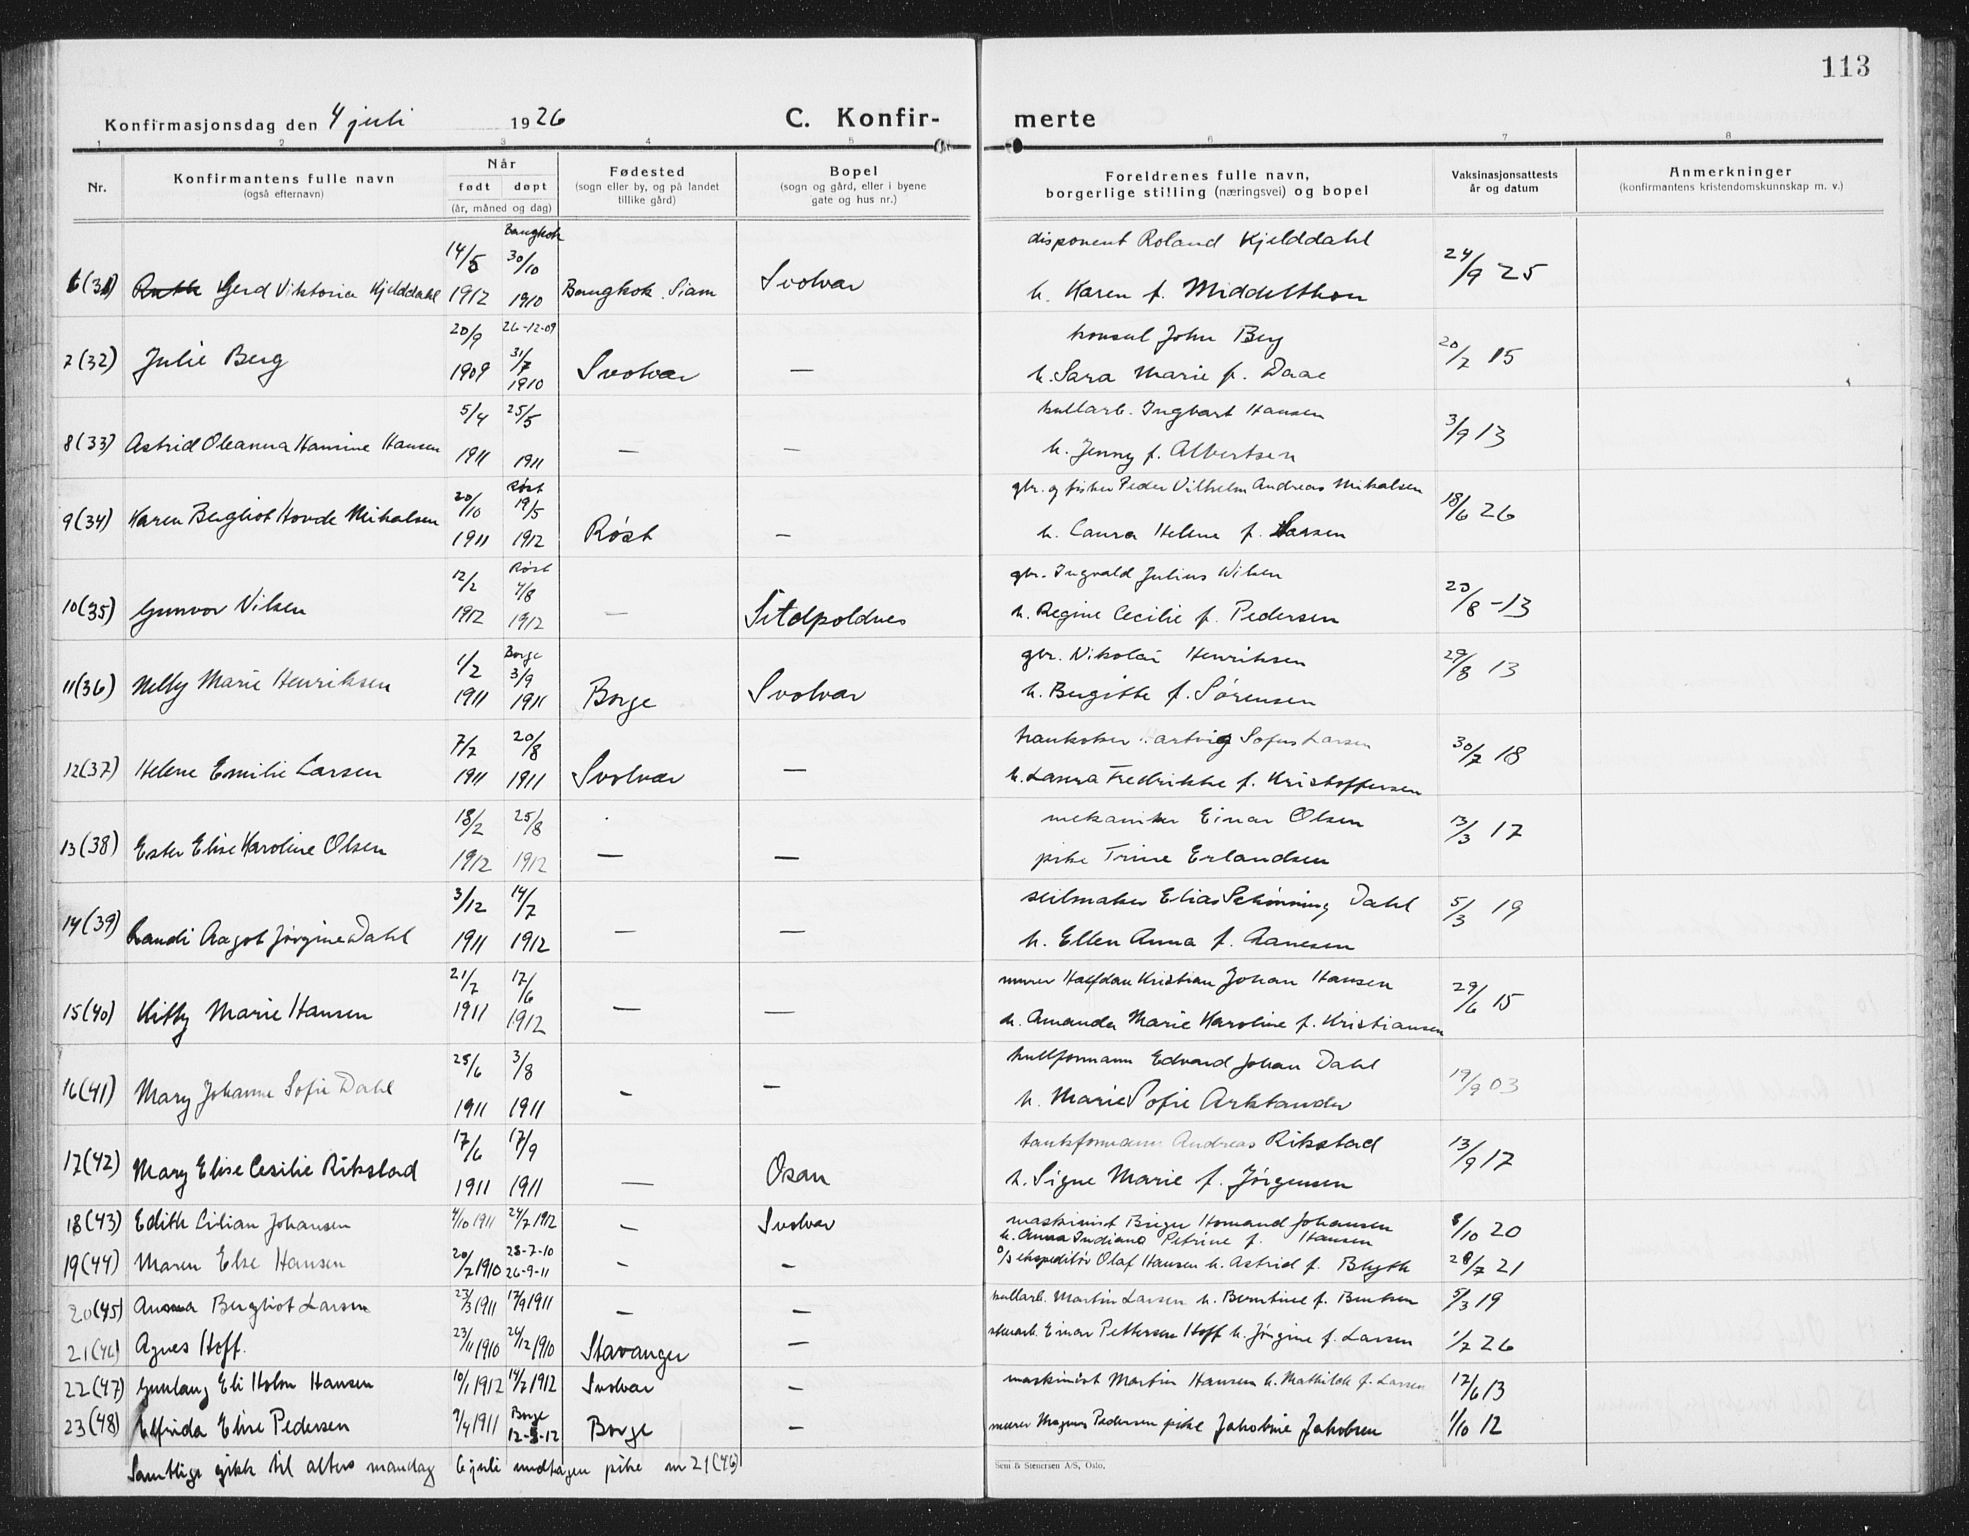 113
Konfirmasjonsdag den 4 juli 1926 C. Konfir-merte
1 2 3 4 5 6 7 8
Nr.
Konfirmantens fulle navn
(også efternavn)
Når
født døpt
(år, måned og dag)
Fødested
(sogn eller by, og på landet
tillike gård)
Bopel
(sogn og gård, eller i byene
gate og hus nr.)
Foreldrenes fulle navn,
borgerlige stilling (næringsvei) og bopel
Vaksinasjonsattests
år og datum
Anmerkninger
(konfirmantens kristendomskunnskap m. v.)
Bangkok
14/5 30/10 disponent Roland Kjelddahl 24/9 25
6(31) Ruth Gerd Viktoria Kjelddahl 1912 1910 Bangkok. Siam Svolvær h. Karen f. Middelthon
20/9 26-12-09 konsul John Berg 20/7 15
2(32) Julie Berg 1909 31/7 1910 Svolvær — h. Sara Marie f. Daae
5/4 25/5 kullarb. Ingvart Hansen 3/9 13
8(33) Astrid Oleanna Hansine Hansen 1911 1911 — — h. Jenny f. Albertsen
Røst
20/10 19/5 gbr. og fisker Peder Vilhelm Andreas Mikalsen 18/6 26
9(34) Karen Bergliot Hovde Mikalsen 1911 1912 Røst — h. Laura Helene f. Larsen
Røst
12/2 4/8 gbr. Ingvald Julius Nilsen 20/8-13
10(35) Gunvor Nilsen 1912 1912 — h. Regine Cecilie f. Pedersen
Borge
1/2 3/9 gbr. Nikolai Henriksen 29/8 13
11(36) Nelly Marie Henriksen 1911 1911 Borge Svolvær h. Birgitte f. Sørensen
7/7 20/8 Hartvig Sofus Larsen 30/7 18
12(37) Helene Emilie Larsen 1911 1911 Svolvær — h. Laura Fredrikke f. Kristoffersen
18/2 25/8 mekaniker Einar Olsen 13/3 17
13(38) Ester Elise Karoline Olsen 1912 1912 — — pike Trine Erlandsen
3/12 14/7 seilmaker Elias Schønning Dahl 5/3 19
14(39) Randi Aagot Jørgine Dahl 1911 1912 — — h. Ellen Anna f. Aanesen
21/7 17/6 murer Halfdan Kristian Johan Hansen 29/6 15
15(40) Kitty Marie Hansen 1911 1912 — — h. Amanda Marie Karoline f. Kristiansen
25/6 3/8 kullformann Edvard Johan Dahl 19/9 03
16(41) Mary Johanne Sofie Dahl 1911 1911 — — h. Marie Sofie Arktander
17/6 17/9 tankformann Andreas Rikstad 13/9 17
17(42) Mary Elise Cesilie Rikstad 1911 1911 — Osan h. Signe Marie f. Jørgensen
18(43) Edith Lilian Johansen 4/10 1911 24/7 1912 — Svolvær maskinist Birger Johansen 8/10 20
h. Anna Indiana Petrine f. Hansen
19(44) Maren Else Hansen 20/7 1910 28-7-10 26-9-11 — — d/s ekspeditør Olaf Hansen h. Astrid f. Blyth 28/7 21
20(45) Anna Bergliot Larsen 23/3 1911 17/9 1911 — — kullarb. Martin Larsen h. Berntine f. 5/3 19
21(46) Agnes Hoff. 23/11 1910 26/12 1910 Stavanger — Einar Pettersen Hoff h. Jørgine f. Larsen 1/7 26
22(47) Gunlaug Eli Holm Hansen 10/1 1912 14/7 1912 Svolvær — maskinist Martin Hansen h. Mathilde f. Larsen 12/6 13
23(48) Elfrida Elise Pedersen 9/4 1911 Borge 12-5-12 Borge — murer Magnus Pedersen pike Jakobine Jakobsen 1/10 12
Samtlige gikk til alters mandag 6 juli undtagen pike nr 21(46)
Sem & Stenersen A/S, Oslo.